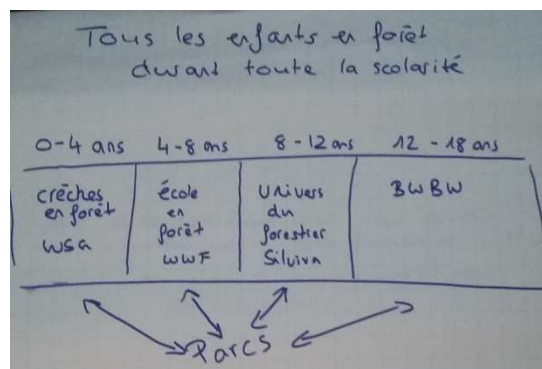 Tous les enfants en forêt
durant toute la scolarité
0-4 ans 4-8 ans 8-12 ans 12-18 ans
crèches
en forêt
WSG
école
en
forêt
WWF
Univers
du
forestier
Silviva
BWBW
Parcs